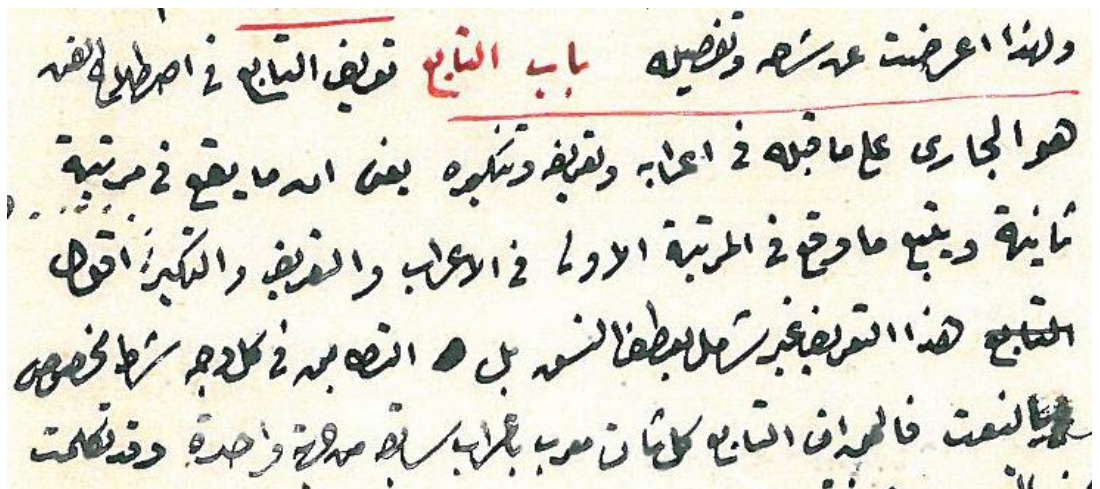 ولهذا اعرضت عن شرحه وتفصيله باب التابع تعريف التابع في اصطلاح الفن
هو الجارى على ما قبله في اعرابه وتعريفه وتنكيره يعنى ان ما يقع في مرتبة
ثانية ويتبع ما وقع في المرتبة الاولى في الاعراب والتعريف والتنكير اقول
التابع هذا التعريف غير شامل لعطف النسق بل التطابق في كل وجه شرط مخصوص
بالنعت فالحق ان التابع كل ثان معرب باعراب سابقه من جهة واحدة وقد تكلمت